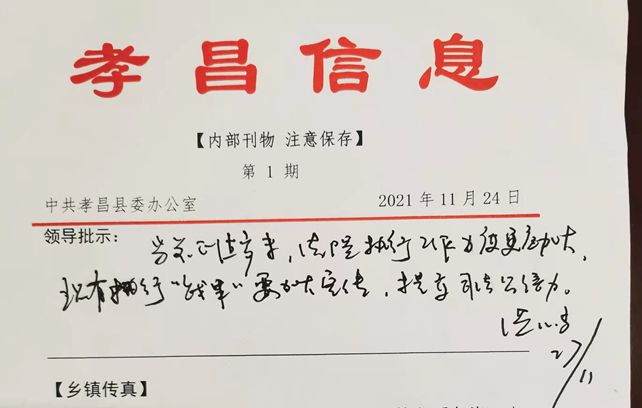 孝昌信息
【内部刊物 注意保存】
第 1 期
中共孝昌县委办公室 2021 年 11 月 24 日
领导批示： 法院执行工作力度更加大，
现有执行“战果”要加大宣传，提高司法公信力。
27/11
【乡镇传真】